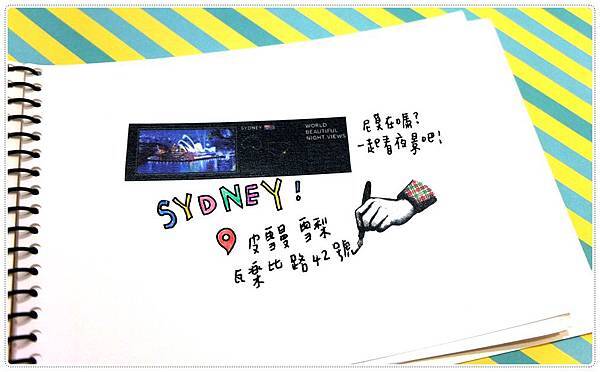 SYDNEY
WORLD
BEAUTIFUL
NIGHT VIEWS
尼莫在嗎?
一起看夜景吧!
SYDNEY!
皮雪曼 雪梨
瓦樂比路42號